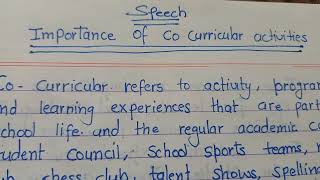 Speech
Importance Of Co curricular activities
Co-Curricular refers to activity, program
and learning experiences that are part
school life and the regular academic co
tudent Council, School sports teams,
chess club, talent shows, spelling